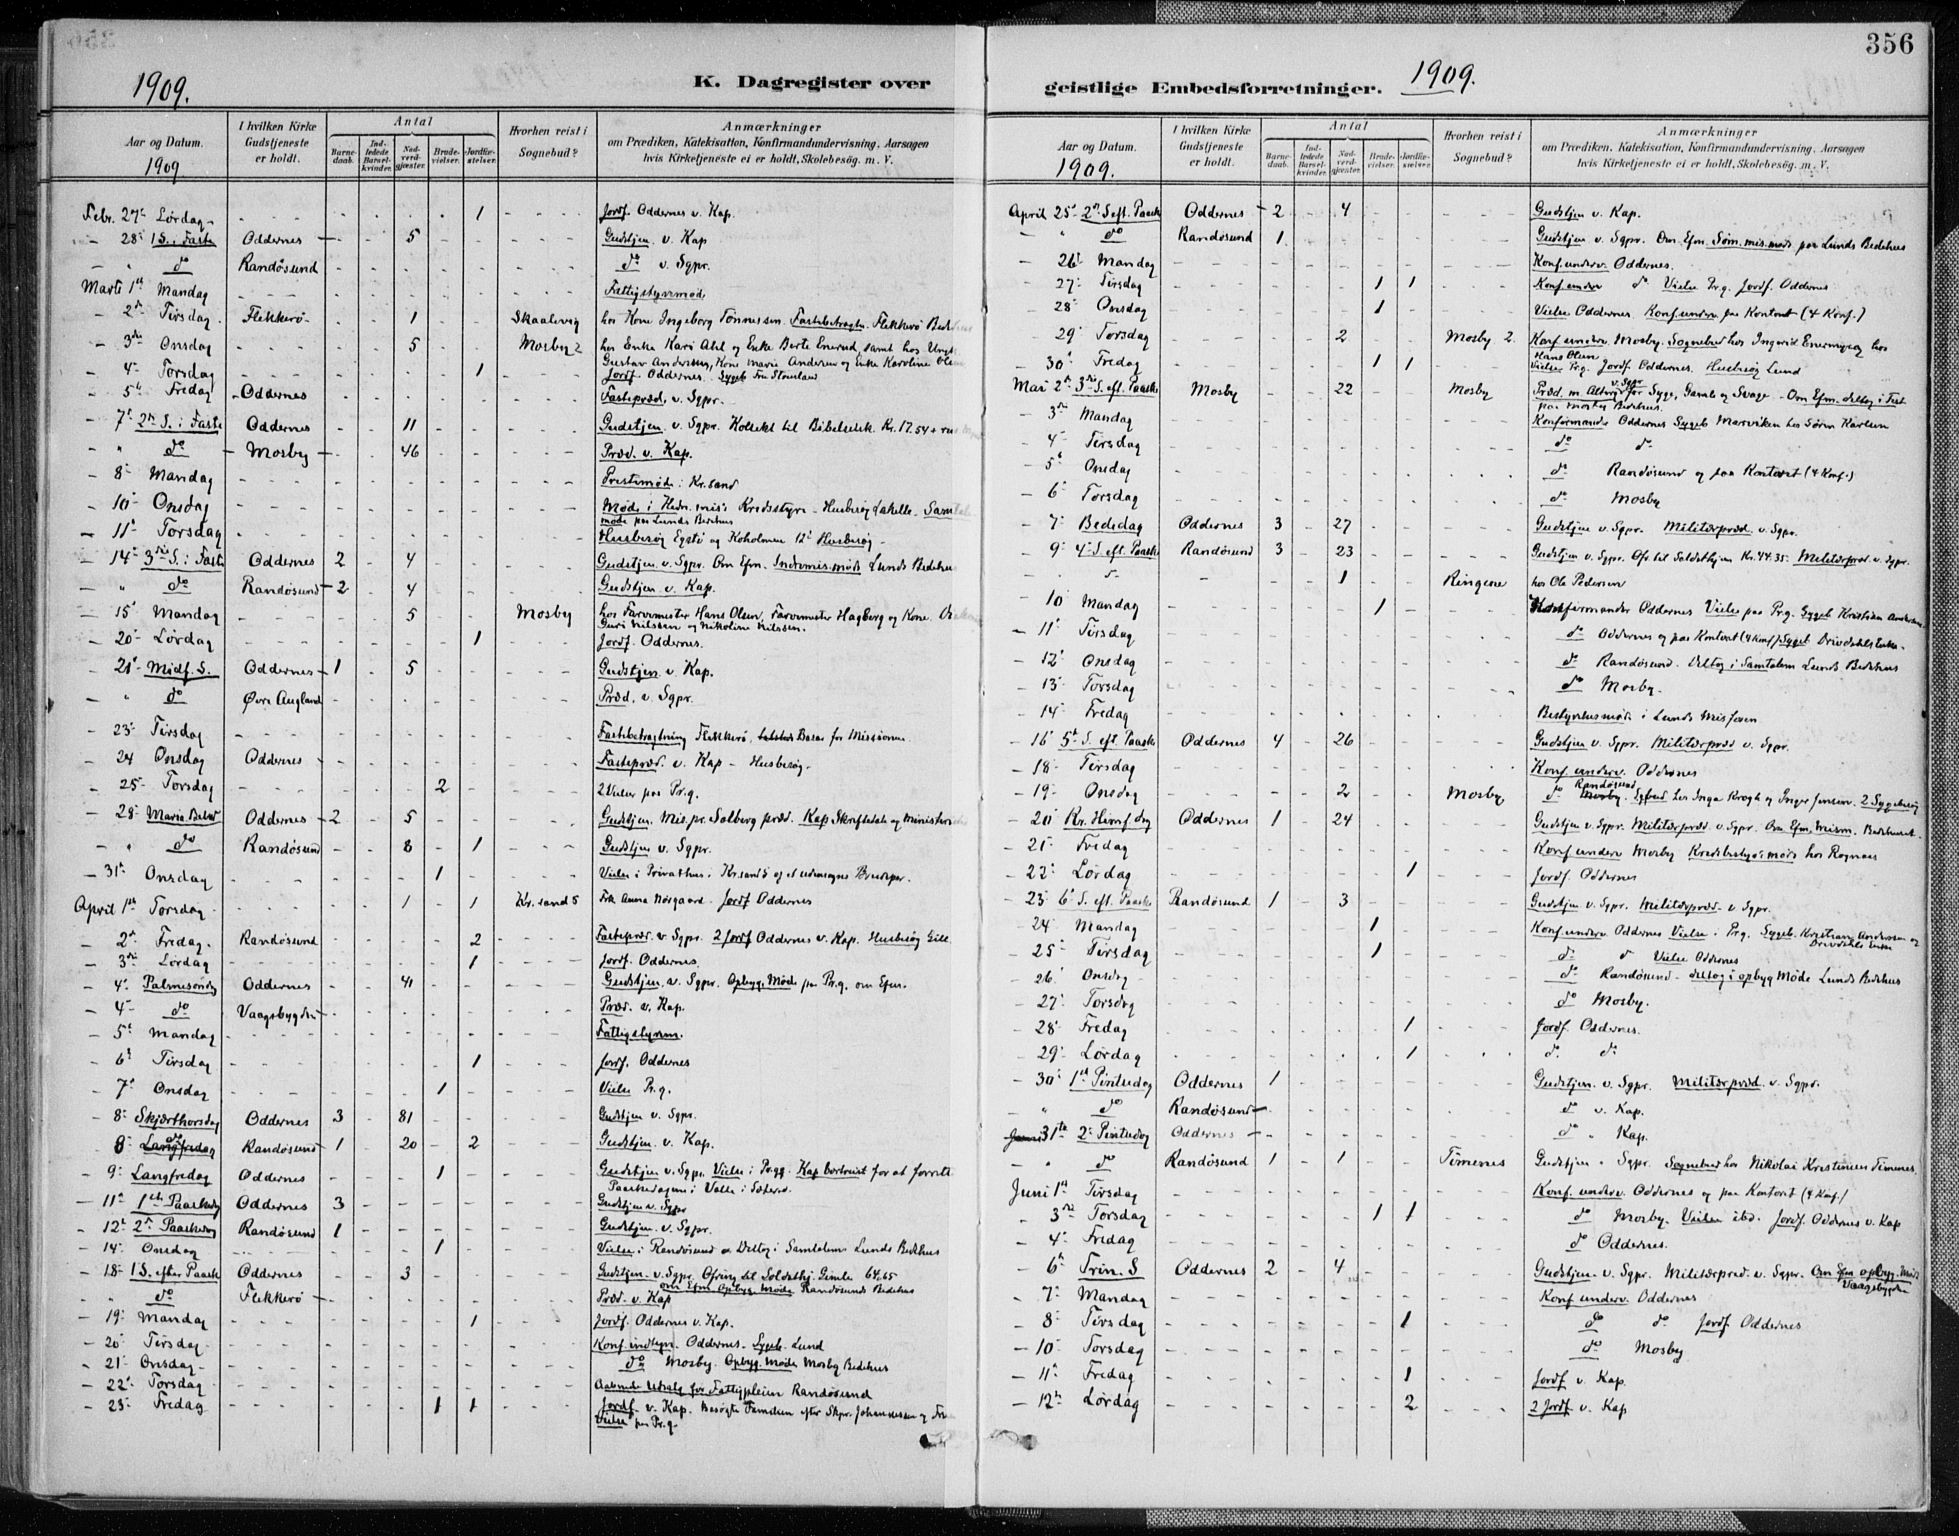 356
1909.
K. Dagregister over
geistlige Embedsforretninger.
1909.
Aar og Datum.
1909
I hvilken Kirke Gudstjeneste er holdt.
Antal
Barnedaab.
Indledede Barselkvinder.
Nadverdgjæster.
Brudevielser.
Jordfæstelser.
Hvorhen reist i Sognebud?
Anmærkninger
om Prædiken, Katekisation, Konfirmandundervisning, Aarsagen
hvis Kirketjeneste ei er holdt, Skolebesøg. m. V.
Febr. 27 Lørdag 1 Jordf. Oddernes v. Kap.
28 1 S. i Faste Oddernes 5 Gudstjen. v. Kap
" do Randøsund do v. Sgpr.
Marts 1st Mandag Fattigstyremøde
2 Tirsdag Flekkerø 1 Skaalevig hos Kone Ingeborg Tønnessen. Fastebetragtn. Flekkerø
3die Onsdag 5 Mosby 2 hos Enke Kari Ahl og Enke Berte samt hos
Gustav Andersson, Kone Marie Andersen og Enke Karoline
4 Torsdag 1 Jordf Oddernes. Sygeb
5 Fredag Oddernes Fastepræd. v. Sgpr.
7 2n S. i Faste Oddernes 11 Gudstjen. v. Sgpr. Kollekt til Bibelselsk. Kr. 17.54
" do Mosby 46 Præd. v. Kap.
8 Mandag Prestemøde i Kr.sand
10 Onsdag Møde i Hedn. mis. Kredsstyre - Husbesøg
møde paa Lunds Bedehus
11 Torsdag Husbesøg Egstø og Kokolmen 12 Husbesøg
14 3die S. i Faste Oddernes 2 4 Gudstjen. v. Sgpr. Om Efm. Indremis.møde Lunds Bedehus
" do Randøsund 2 4 Gudstjen. v. Kap.
15 Mandag 5 Mosby hos Farvemester Hans Olsen, Farvemester Hagberg og Kone.
Guri Nilssen og Nikoline Nilssen.
20 Lørdag 1 Jordf. Oddernes.
21 Midf. S. Oddernes 1 5 Gudstjen v. Kap.
" do Øvre Augland Præd. v. Sgpr.
23 Tirsdag Fastebetragtning Flekkerø, Basar for Missionen
24 Onsdag Oddernes Fastepræd. v. Kap - Husbesøg
25 Torsdag 2 2 Vielser paa Pr.g.
28 Maria Bebud Oddernes 2 5 Gudstjen. Mis.pr. Solberg præd. Kap Skriftetale og
" do Randøsund 8 1 Gudstjen v. Sgpr.
31te Onsdag 1 Vielse i Privathus i Kr.sand S
April 1st Torsdag 1 1 Kr.sand S Frk Anna Nørgaard. Jordf Oddernes
2 Fredag Randøsund 2 Fastepræd. v. Sgpr. 2 Jordf Oddernes v. Kap. Husbesøg
3die Lørdag 1 Jordf. Oddernes.
4 Palmesøndag Oddernes 41 Gudstjen. v. Sgpr. Opbygg. Møde paa Pr.g. om Efm.
4 do Vaagsbygden Præd. v. Kap.
5 Mandag Fattigstyrem.
6 Tirsdag 1 Jordf. Oddernes
7 Onsdag 1 Vielse Pr.g.
8 Skjærthorsdag Oddernes 3 81 Gudstjen v. Sgpr.
8 do Randøsund 1 20 2 Gudstjen. v. Kap.
9 Langfredag Oddernes 1 Gudstjen v. Sgpr. Vielse i Pr.g. Kap bortreist for at
Paaskedagene i Valle i Sæters.
11 1ste Paaskedag Oddernes 3 Gudstjen v. Sgpr
12 2n Paaskedag Randøsund 1 Gudstjen. v. Sgpr.
14 Onsdag 1 Vielse i Randøsund Deltog i Samtalem Lunds Bedehus
18 1 S. efter Paaske Oddernes 3 Gudstjen. v. Sgpr. Ofring til Soldathj. Gimle 64,65
om Efm Opbyg. Møde Randøsunds Bedehus
" do Flekkerø Præd. v. Kap
19 Mandag 1 Jordf. Oddernes v. Kap.
20 Tirsdag Konf. indtegn. Oddernes. Sygeb. Lund
21 Onsdag do Mosby. Opbyg. Møde Mosby Bedehus
22 Torsdag for Fattigpleien Randøsund
23 Fredag 1 1 Jordf. v. Kap. Besøgte Familien efter Skpr. Johannesen og
Vielse paa Pr.g.
Aar og Datum.
1909.
I hvilken Kirke Gudstjeneste er holdt.
Antal
Barnedaab.
Indledede Barselkvinder.
Nadverdgjæster.
Brudevielser.
Jordfæstelser.
Hvorhen reist i Sognebud?
Anmærkninger
om Prædiken, Katekisation, Konfirmandundervisning, Aarsagen
hvis Kirketjeneste ei er holdt, Skolebesøg. m. V.
April 25 2n S. eft. Paaske Oddernes 2 4 Gudstjen v. Kap.
" do Randøsund 1 Gudstjen v. Sgpr. Om Efm. Søm. mis. møde paa Lunds Bedehus
26 Mandag Konf. underv. Oddernes.
27 Tirsdag 1 1 Konf. underv do Vielse Pr.g. Jordf. Oddernes
28 Onsdag 1 Vielse Oddernes. Konf. underv paa Kontoret (4 Konf.)
29 Torsdag 2 Mosby 2. Konf. underv. Mosby. Sognebud hos Ingerid hos
Hans Olsen
30 Fredag 1 1 Vielse Pr.g. Jordf. Oddernes. Husbesøg Lund
Mai 2 3die S. eft. Paaske Mosby 22 Mosby Præd. m. Altergang v. Sgpr for Syge, Gamle og Svage - Om Efm. deltog i Fest
paa Mosby Bedehus.
3die Mandag Konfirmander Oddernes Sygeb Marviken hos Søren Karlsen
4 Tirsdag do do
5 Onsdag do Randøsund og paa Kontoret (4 Konf.)
6 Torsdag do Mosby
7 Bededag Oddernes 3 27 Gudstjen v. Sgpr. Militærpræd. v. Sgpr.
9 4 S. eft. Paaske Randøsund 3 23 Gudstjen v. Sgpr. Ofr. til Soldathjem Kr. 44.35. Militærpræd. v. Sgpr.
1 Ringere hos Ole Pedersen
10 Mandag 1 Konfirmander Oddernes Vielse paa Pr.g. Sygeb Kristian Andersen
11 Tirsdag do Oddernes og paa Kontoret (4 Konf.) Sygeb Drivdahls Enke
12 Onsdag do Randøsund. Deltog i Samtalem Lunds Bedehus
13 Torsdag do Mosby.
14 Fredag Bestyrelsesmøde i Lunds Misforen
16 5 S. eft. Paaske Oddernes 4 26 Gudstjen v. Sgpr. Militærpræd v. Sgpr.
18 Tirsdag Konf. underv. Oddernes
19 Onsdag 2 Mosby do Randøsund Mosby. Sognebud hos Inga Krogh og Inger Jensen. 2 Sygebesøg
20 Kr. Himf. dag Oddernes 1 24 Gudstjen v. Sgpr. Militærpræd. v. Sgpr. Om Efm. Mism. Bedehuset.
21 Fredag Konf underv Mosby Kredsbestyr. møde hos Rognaas
22 Lørdag 1 Jordf. Oddernes
23 6 S. eft. Paaske Randøsund 1 3 Gudstjen v. Sgpr. Militærpræd. v Sgpr.
24 Mandag 1 Konf. underv Oddernes Vielse i Pr.g. Sygeb. Kristian Andersen og
Drivdahls Enke
25 Tirsdag 1 do do Vielse Oddernes
26 Onsdag do Randøsund - deltog i opbyg Møde Lunds Bedehus
27 Torsdag do Mosby.
28 Fredag 1 Jordf. Oddernes.
29 Lørdag 1 do do
30 1st Pintsedag Oddernes 1 Gudstjen. v. Sgpr. Militærpræd. v. Sgpr.
" do Randøsund do v. Kap.
31te 2 Pintsedag Oddernes do " Kap.
" do Randøsund 1 1 Timenes Gudstjen " Sgpr. Sognebud hos Nikolai Kristensen Timenes.
Juni 1st Tirsdag Konf. underv. Oddernes og paa Kontoret (4 Konf.)
3die Torsdag 1 1 do Mosby. Vielse ibd. Jordf. Oddernes v. Kap
4 Fredag do Oddernes.
6te Trin. S Oddernes 2 4 Gudstjen v. Sgpr. Militærpræd. v. Sgpr. Om Efm opbyg. Møde
Vaagsbygden
7 Mandag Konf underv. Oddernes
8 Tirsdag 1 do do Jordf Oddernes
10 Torsdag do Mosby
11 Fredag 1 Jordf v. Kap
12te Lørdag 2 2 Jordf v. Kap